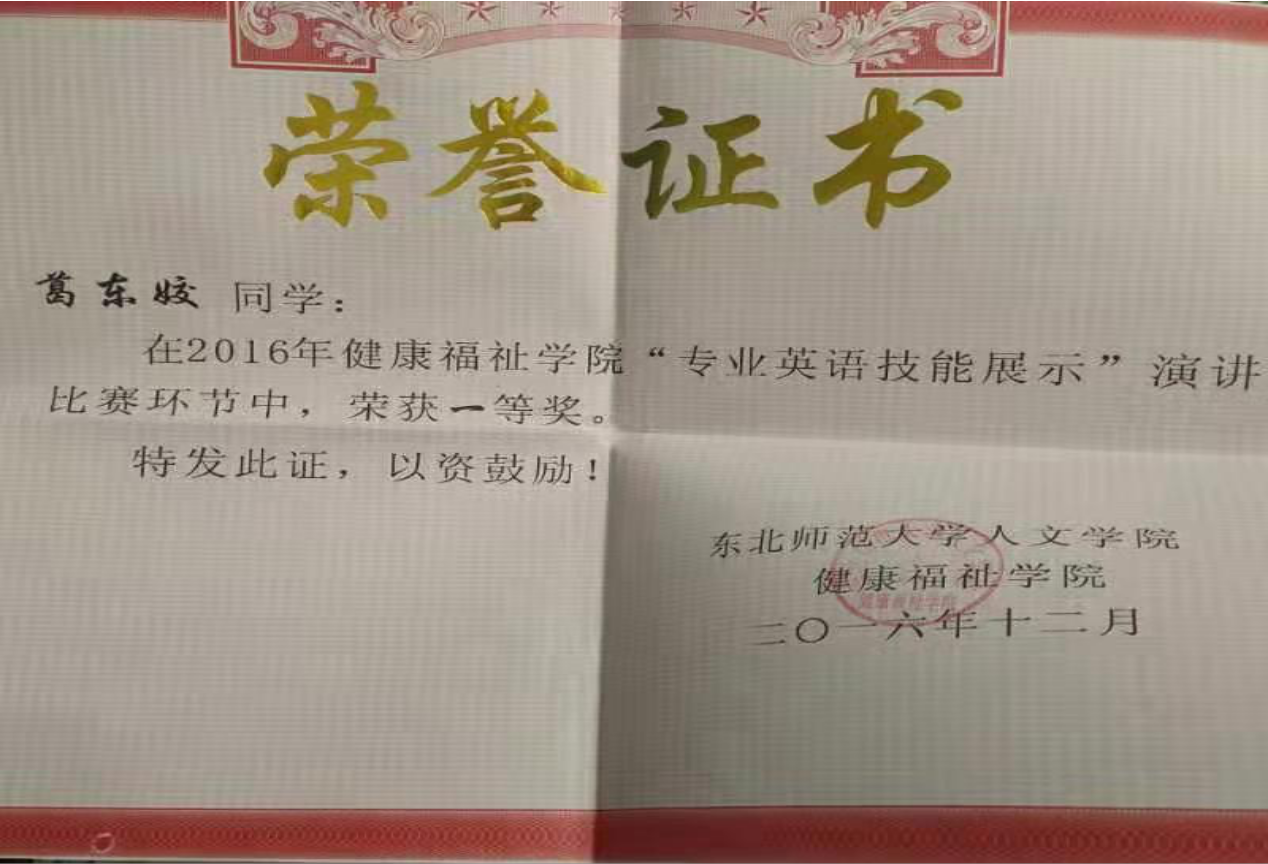 荣誉证书
葛东姣 同学：
在2016年健康福祉学院“专业英语技能展示”演讲
比赛环节中，荣获一等奖。
特发此证，以资鼓励！
东北师范大学人文学院
健康福祉学院
二〇一六年十二月
健康福祉学院